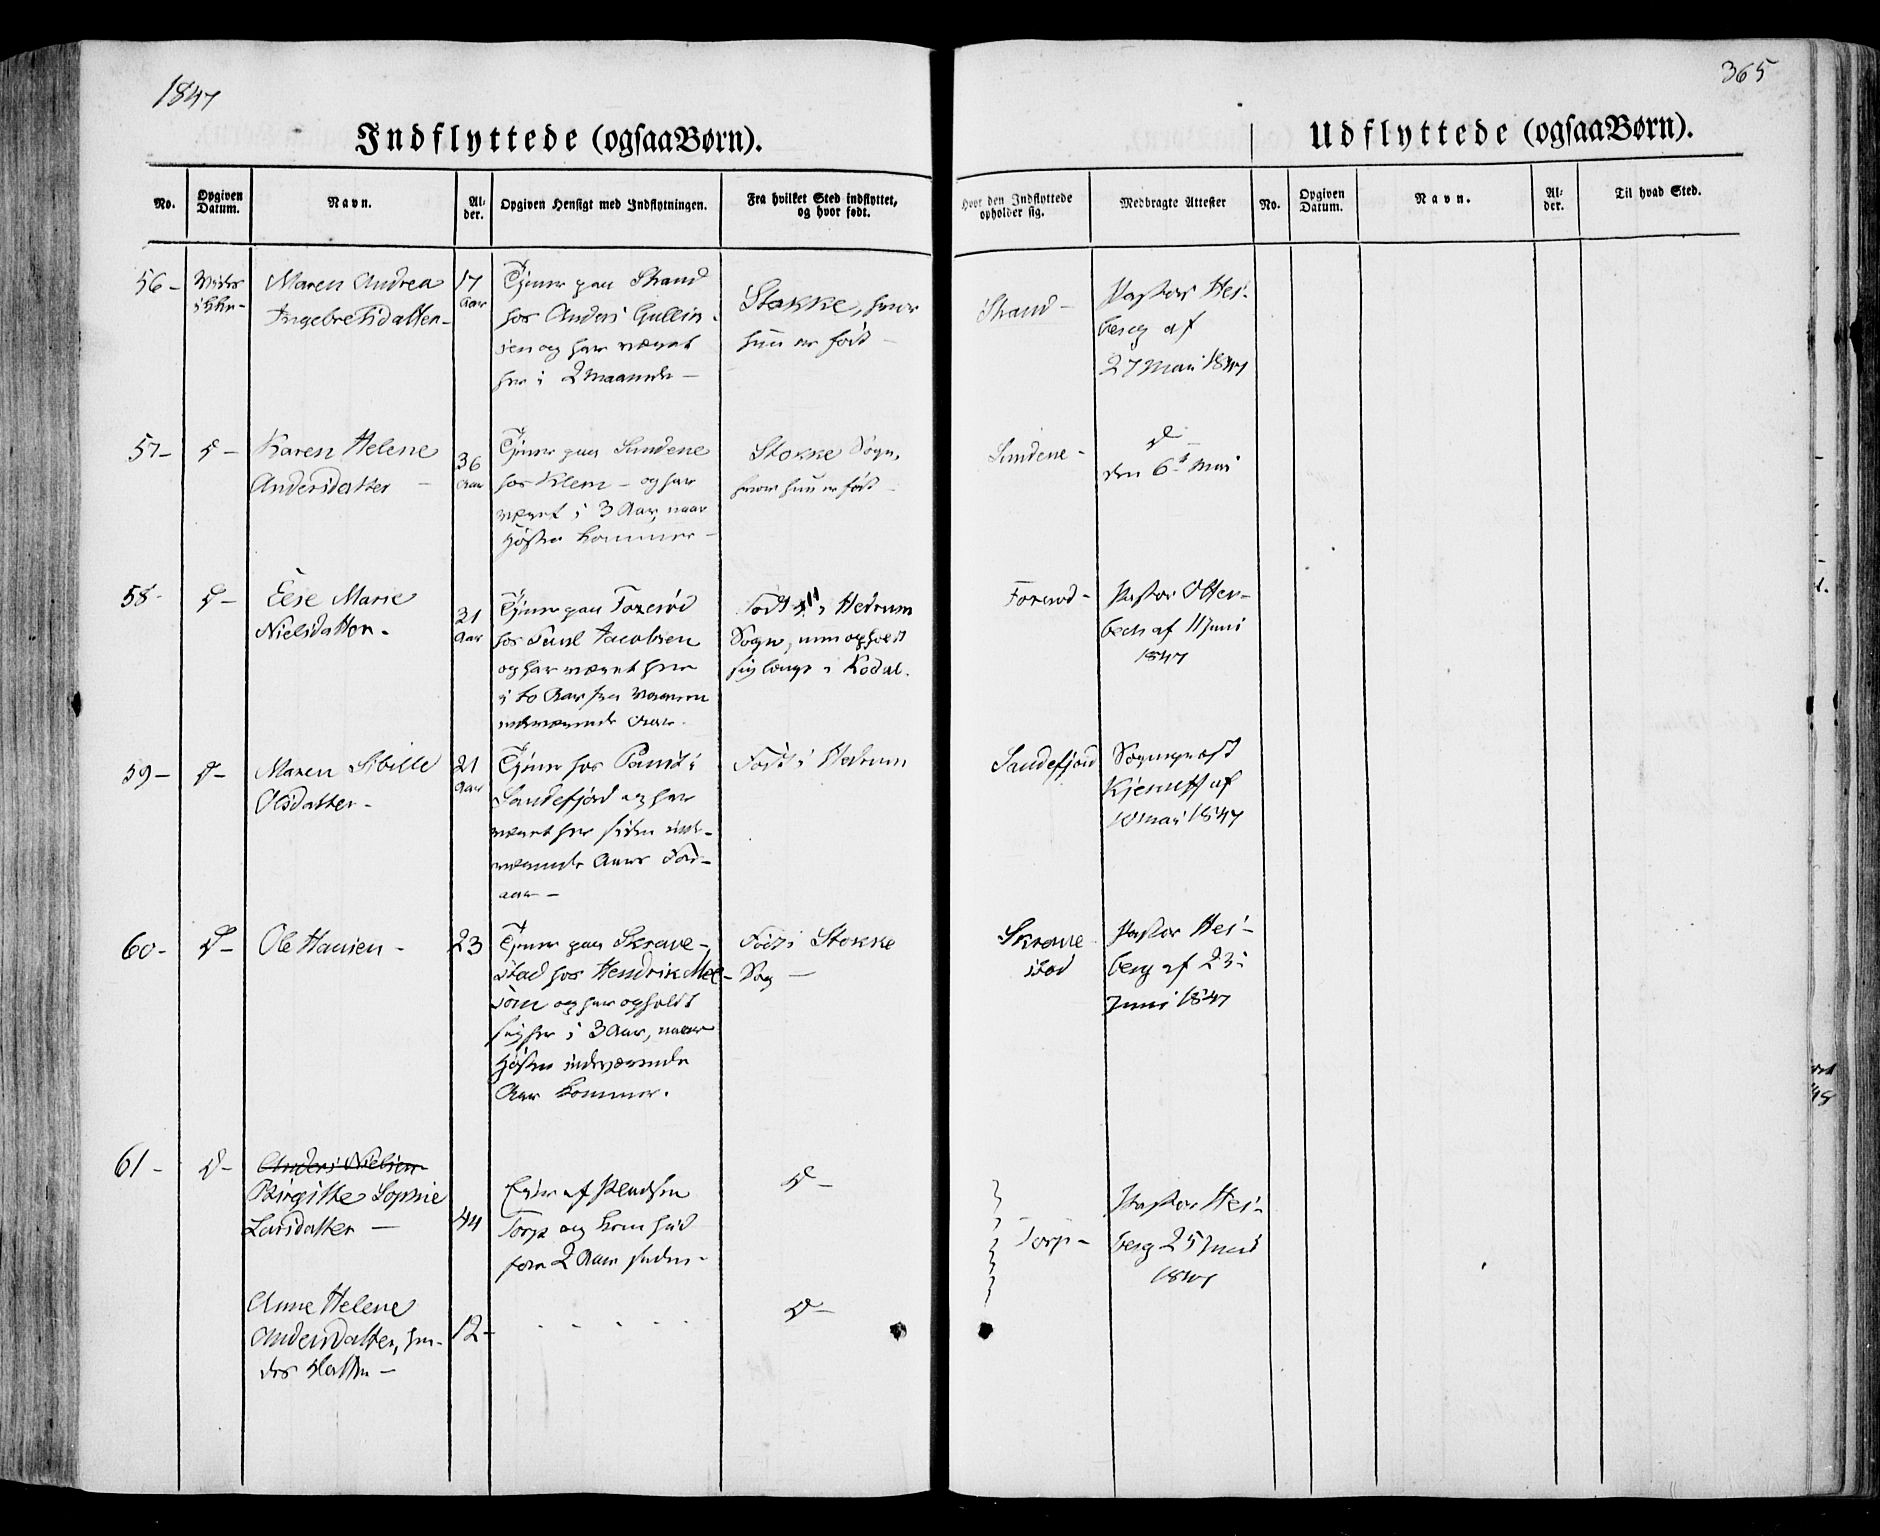 1847
365
Indflyttede (ogsaa Børn).
Udflyttede (ogsaa Børn).
No.
Opgiven Datum.
Navn.
Al-
der.
Opgiven Hensigt med Indflytningen.
Fra hvilket Sted indflyttet,
og hvor født.
Hvor den Indflyttede
opholder sig.
Medbragte Attester
No.
Opgiven
Datum.
Navn.
Al-
der.
Til hvad Sted.
56-
ikke-
Maren Andrea
Ingebretsdatter-
17
Aar
Tjener paa Strand
hos Anders Gullik-
sen og har været
her i 2 Maaneder-
Stokke, hvor
hun er født-
Strand-
Pastor Hei-
berg af
27 Mai 1847
57-
D-
Karen Helene
Andersdatter-
36
Aar
Tjener paa Sundene
hos Klem- og har
været i 3 Aar, naar
Høsten kommer-
Stokke Sogn,
hvor hun er født-
Sundene-
D-
den 6te Mai
58-
D-
Else Marie
Nielsdatter-
21
Aar
Tjener paa Foxerød
hos Jacobsen
og har været her
i to Aar fra Vaaren
indeværende Aar.
Født i Hedrum
Sogn, men opholdt
sig længe i Kodal.
Foxerød-
Pastor Otter-
bech af 11 Juni
1847
59-
D-
Maren Sibille
Olsdatter-
21
Aar
Tjener hos i
Sandefjord og har
været her siden inde-
værende Aars For-
aar-
Født i Hedrum
Sandefjord
Sognepræst
af
10 Mai 1847
60-
D-
Ole Hansen-
23
Tjener paa Skrave-
stad hos Hendrik Mel-
som og har opholdt
sig her i 3 Aar, naar
Høsten indeværende
Aar kommer.
Født i Stokke
Sogn-
Skrave
stad
Pastor Hei-
berg af 23
Juni 1847
61-
D-
Anders Nielsen
Birgitte Sophie
Larsdatter-
44
Eier af Pladsen
Torp og kom hid
for 2 Aar siden-
D-
Torp-
Pastor Hei-
berg 25 Juni
1847
Anne Helene
Andersdatter, hen-
des Datter-
12-
D-